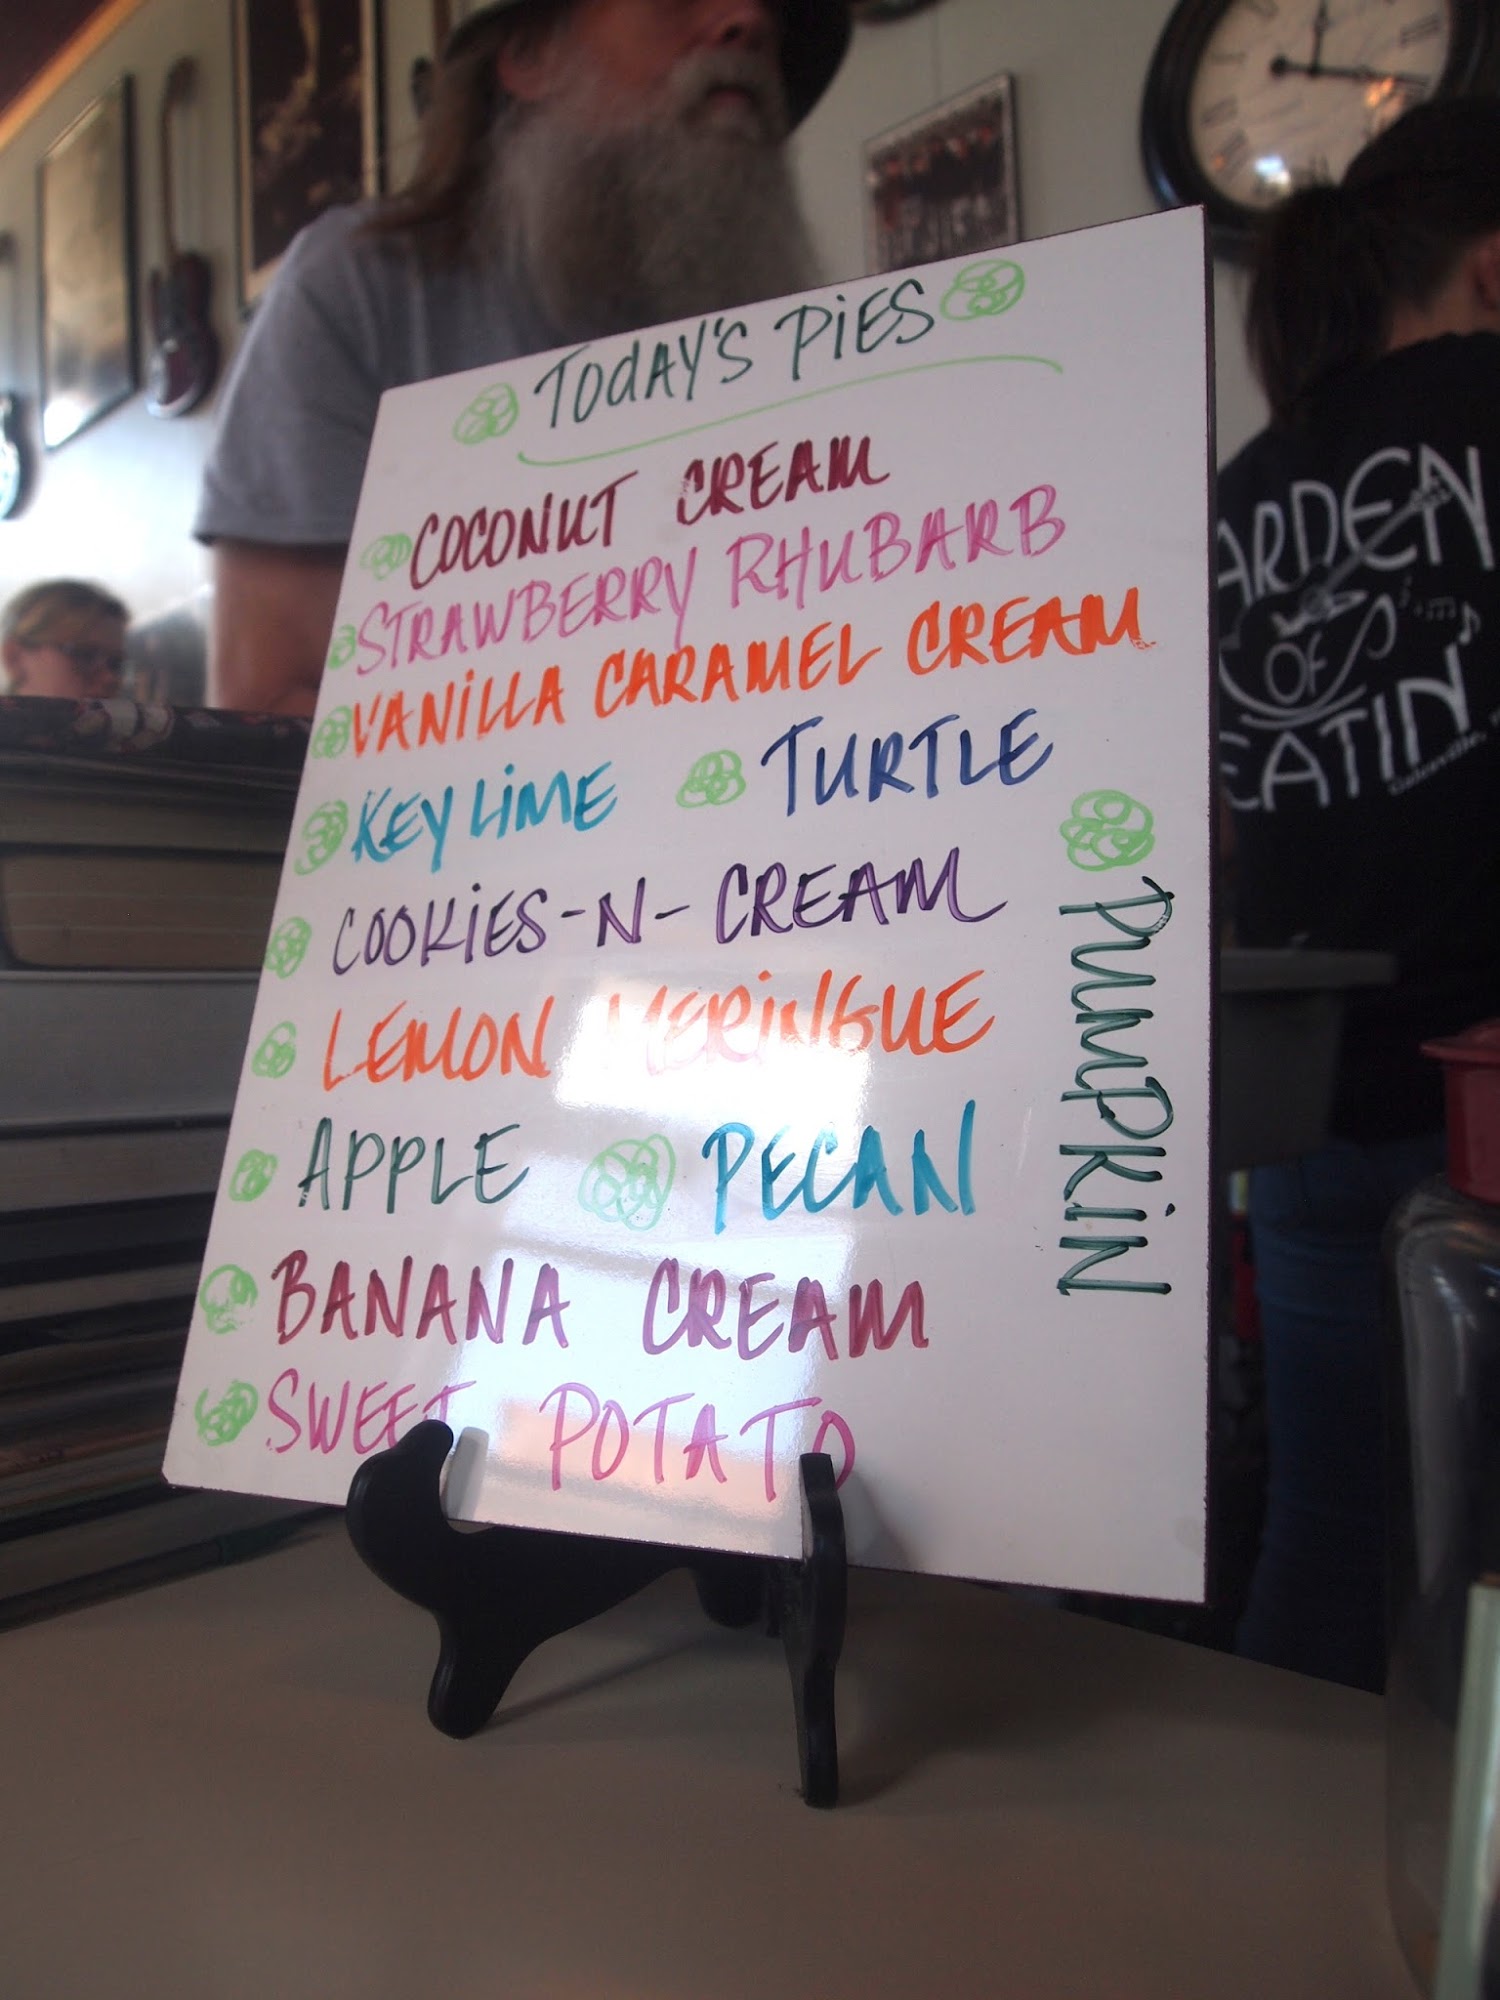 TODAY'S PIES
COCONUT CREAM
STRAWBERRY RHUBARB
VANILLA CARAMEL CREAM
KEY LIME TURTLE
COOKIES-N-CREAM
LEMON MERINGUE
APPLE PECAN
BANANA CREAM
SWEET POTATO
PUMPKIN
ARDEN
OF
EATIN'